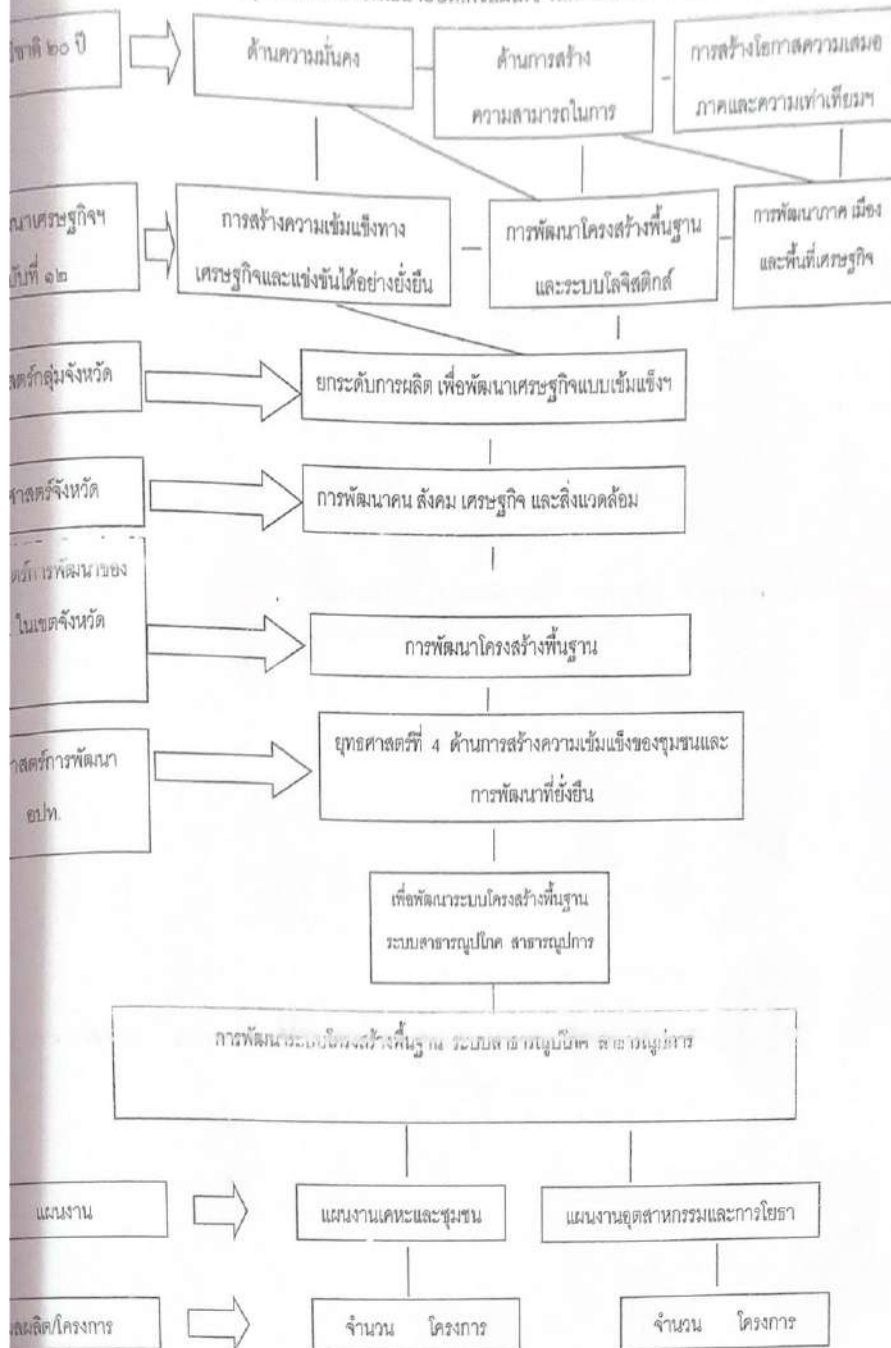 ๒๐ ปี
ด้านความมั่นคง
ด้านการสร้าง
ความสามารถในการ
การสร้างโอกาสความเสมอ
ภาคและความเท่าเทียมฯ
นาเศรษฐกิจฯ
บับที่ ๑๒
การสร้างความเข้มแข็งทาง
เศรษฐกิจและแข่งขันได้อย่างยั่งยืน
การพัฒนาโครงสร้างพื้นฐาน
และระบบโลจิสติกส์
การพัฒนาภาค เมือง
และพื้นที่เศรษฐกิจ
สตร์กลุ่มจังหวัด
ยกระดับการผลิต เพื่อพัฒนาเศรษฐกิจแบบเข้มแข็งฯ
ศาสตร์จังหวัด
การพัฒนาคน สังคม เศรษฐกิจ และสิ่งแวดล้อม
ตร์การพัฒนาของ
ในเขตจังหวัด
การพัฒนาโครงสร้างพื้นฐาน
าสตร์การพัฒนา
อปท.
ยุทธศาสตร์ที่ 4 ด้านการสร้างความเข้มแข็งของชุมชนและ
การพัฒนาที่ยั่งยืน
เพื่อพัฒนาระบบโครงสร้างพื้นฐาน
ระบบสาธารณูปโภค สาธารณูปการ
การพัฒนาระบบโครงสร้างพื้นฐาน ระบบสาธารณูปโภค สาธารณูปการ
แผนงาน
แผนงานเคหะและชุมชน
แผนงานอุตสาหกรรมและการโยธา
ผลผลิต/โครงการ
จำนวน โครงการ
จำนวน โครงการ